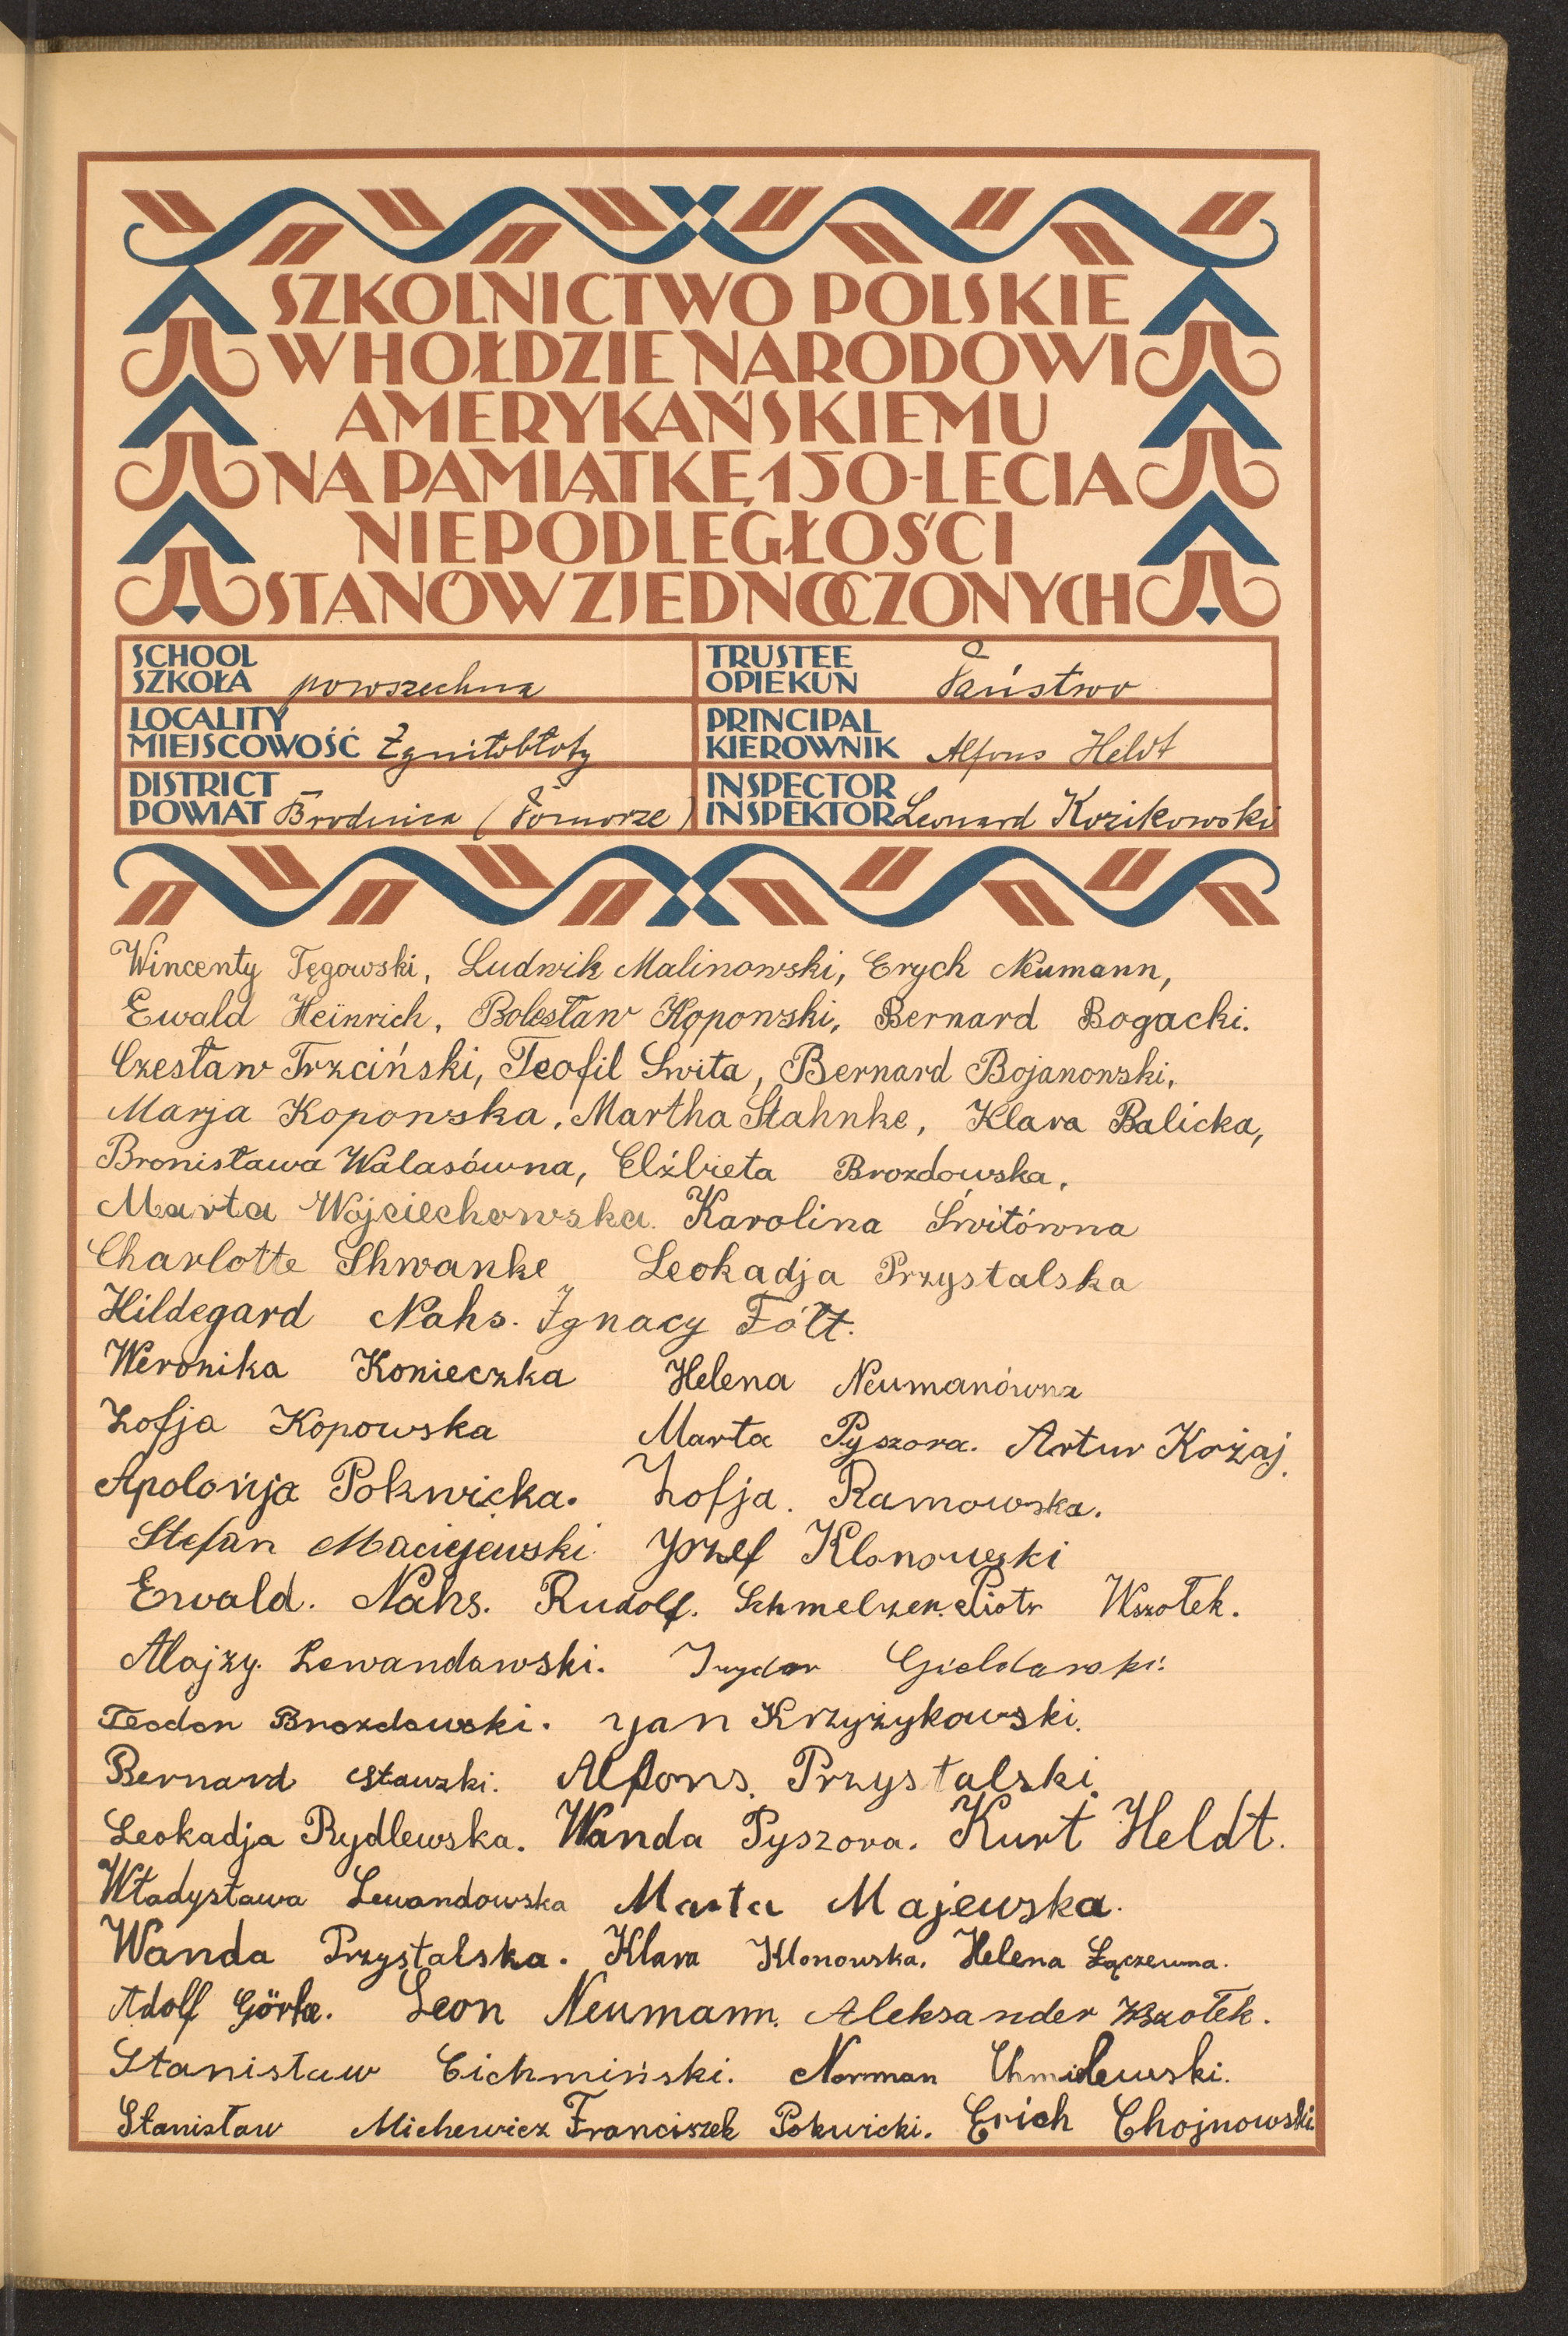 SZKOLNICTWO POLSKIE
W HOŁDZIE NARODOWI
AMERYKAŃSKIEMU
NA PAMIĄTKĘ 150-LECIA
NIEPODLEGŁOŚCI
STANÓW ZJEDNOCZONYCH
SCHOOL
SZKOŁA powszechna
TRUSTEE
OPIEKUN Państwo
LOCALITY
MIEJSCOWOŚĆ Zgniłobłoty
PRINCIPAL
KIEROWNIK Alfons Heldt
DISTRICT
POWIAT Brodnica (Pomorze)
INSPECTOR
INSPEKTOR Leonard Kozikowski
Wincenty Tęgowski, Ludwik Malinowski, Erych Neumann,
Ewald Heinrich, Bolesław Kopowski, Bernard Bogacki.
Czesław Trzciński, Teofil Świta, Bernard Bojanowski,
Marja Koponska, Martha Stahnke, Klara Balicka,
Bronisława Walasówna, Elżbieta Brozdowska,
Marta Wojciechowska. Karolina Świtówna
Charlotte Shwanke Leokadja Przystalska
Hildegard Nahs. Ignacy Fółt.
Weronika Konieczka Helena Neumanówna
Zofja Kopowska Marta Pyszora. Artur Kożaj.
Apolonja Pokwicka. Zofja. Ramowska.
Stefan Maciejewski. Józef Klonowski
Ewald. Nahs. Rudolf. Schmelzer. Piotr Wszołek.
Alojzy. Lewandowski. Izydor
Teodor Brozdowski. Jan Krzyżykowski.
Bernard Alfons. Przystalski.
Leokadja Rydlewska. Wanda Pyszora. Kurt Heldt.
Władysława Lewandowska Marta Majewska.
Wanda Przystalska. Klara Klonowska. Helena
Adolf Leon Neumann. Aleksander Wszołek.
Stanisław Cichmiński. Norman Chmilewski.
Stanisław Michewicz Franciszek Pokwicki. Erich Chojnowski.